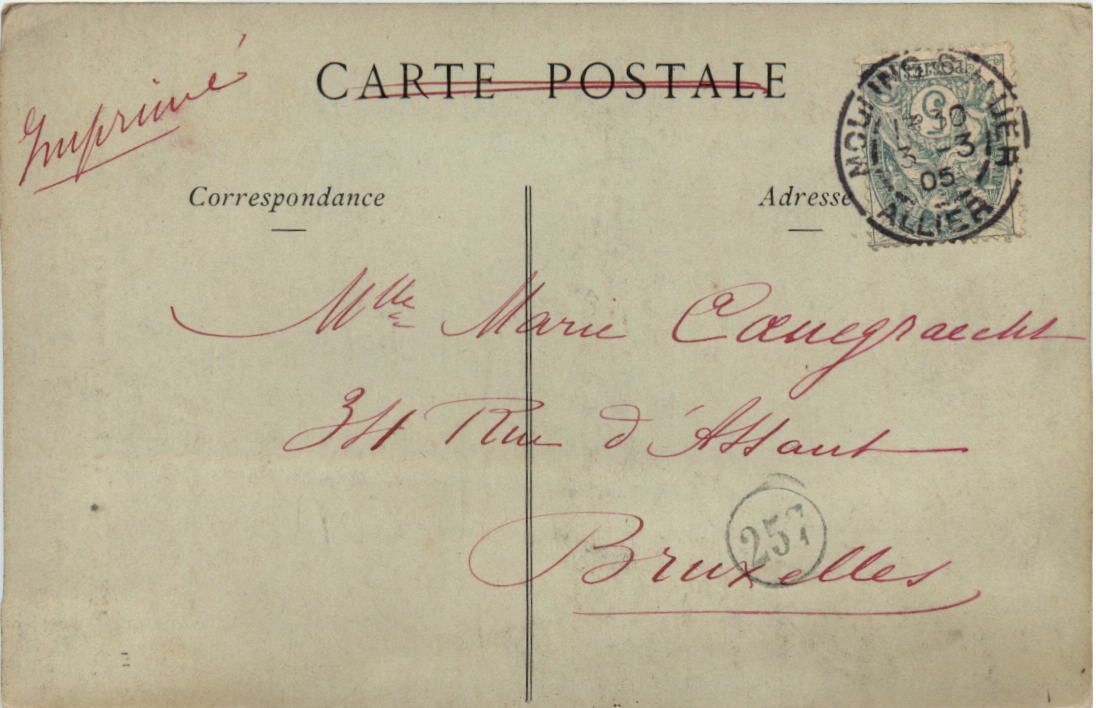 Imprimé
CARTE POSTALE
Correspondance
Adresse
MOULINS-S-ALLIER
30
3
05
ALLIER
5
Mlle Marie
Rue d'Assaut
Bruxelles
257